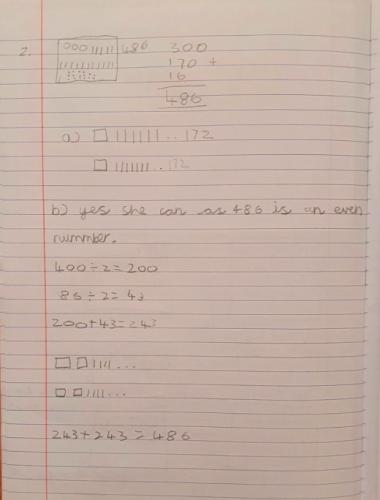 2. 000 486 300
170 +
16
486
a) 172
172
b) yes she can as 486 is an even
nummber.
400÷2=200
86÷2=43
200+43=243
243+243=486